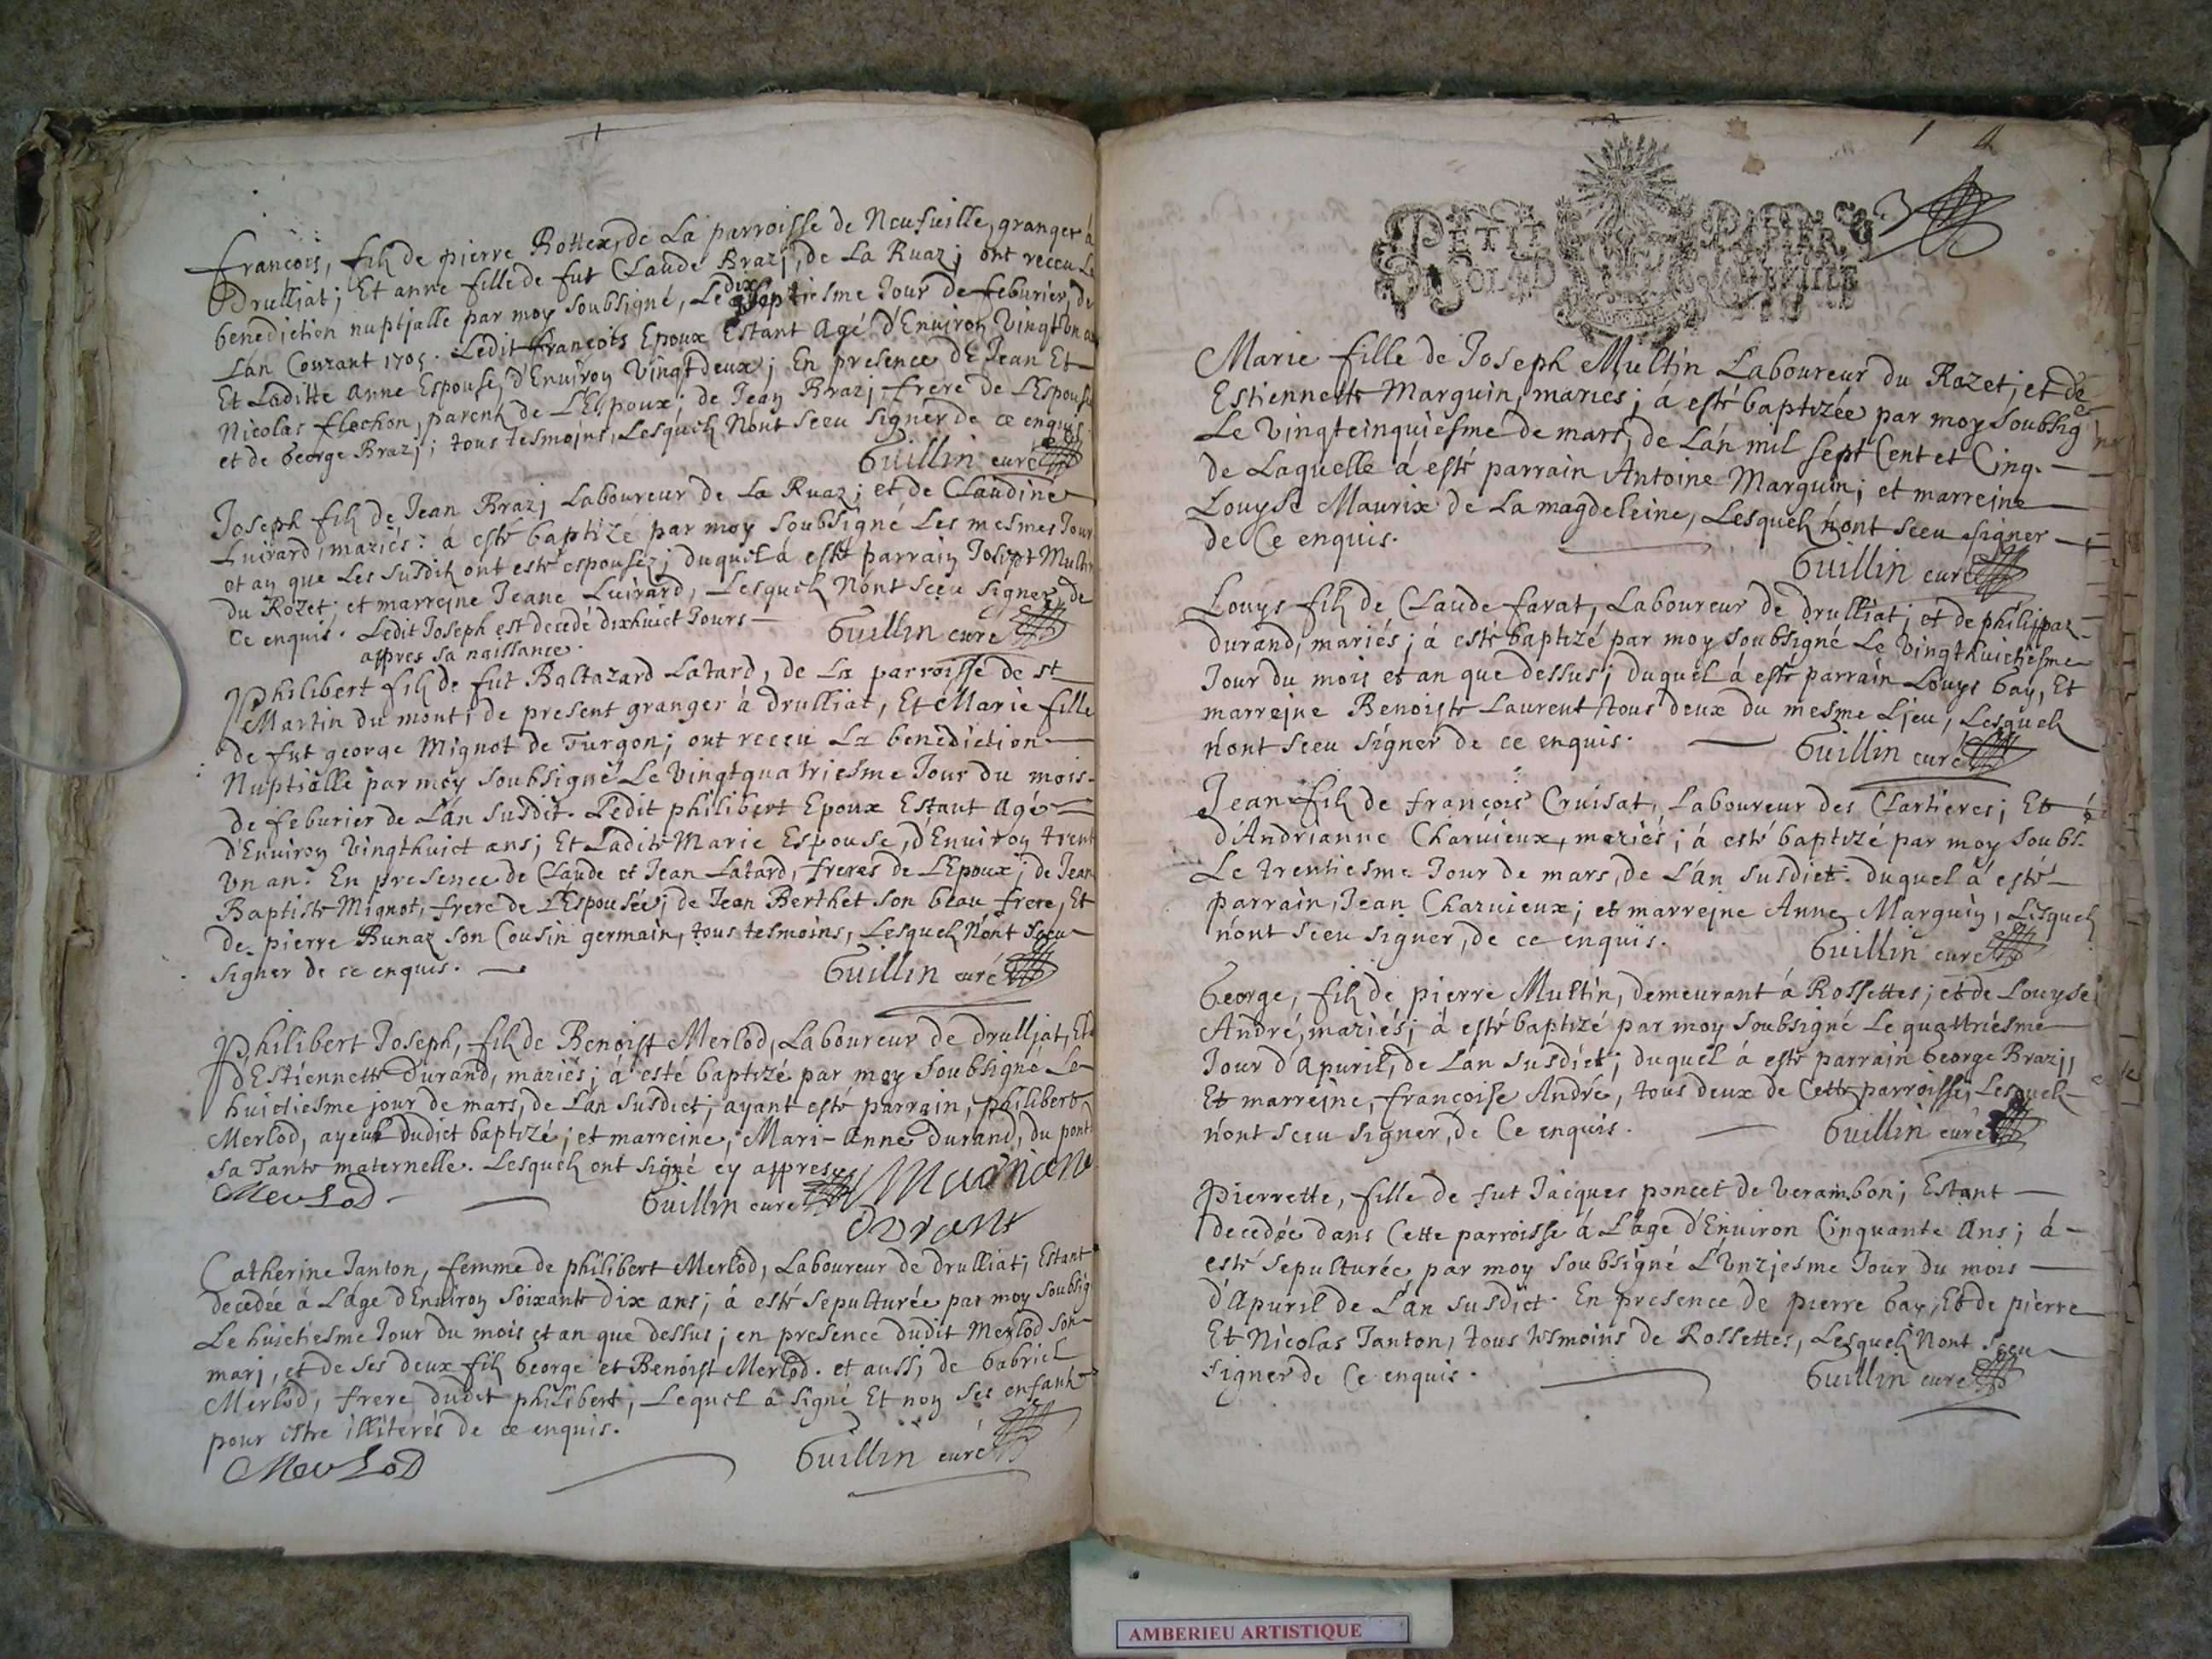 François, fils de pierre Rottex, de La parroisse de Neufuille, granger à
Drulliat; Et anne fille de fut Claude Brazj, de La Ruaz; ont receu La
benediction nuptjalle par moy soubsigné, Le dix septiesme Jour de feburier, de
Lan Courant 1705. Ledit françois Epoux Estant Agé d'Enuiron Vingt Vn an
Et Laditte Anne Espouse, d'Enuiron Vingtdeux; En presence dE Jean Et
Nicolas flochon, parents de L'Espoux; de Jean Brazj frere de L'Espouse
et de George Brazj; tous tesmoins, Lesquels Nont sceu signer de ce enquis
Guillin curé
Joseph fils de Jean Brazj Laboureur de La Ruaz; et de Claudine
Luirard, mariés: à esté baptizé par moy soubsigné Les mesmes Jour
et an que Les susdits ont esté espousez; duquel a esté parrain Joseph Multin
du Rozet; et marrejne Jeane Luirard, Lesquels Nont sceu signer, de
Ce enquis. Ledit Joseph est decedé dixhuict Jours
appres sa naissance.
Guillin curé
Philibert fils de fut Baltazard Latard, de La parroisse de st
Martin du mont; de present granger à drulliat, Et Marie fille
de fut george Mignot de Turgon; ont receu La benediction
Nuptialle par moy soubsigné Le Vingtquatriesme Jour du mois
de feburier de L'an susdit. Ledit philibert Epoux Estant Agé
d'Enuiron Vingthuict ans; Et Ladite Marie Espouse, d'Enuiron trent
Vn an. En presence de Claude et Jean Latard, freres de L'Epoux; de Jean
Baptiste Mignot, frere de L'Espousée; de Jean Berthet son beau frere, Et
de pierre Bunaz son Cousin germain, tous tesmoins, Lesquels Nont sceu
signer de ce enquis.
Guillin curé
Philibert Joseph, fils de Benoist Merlod, Laboureur de drulljat, Et
d'Estiennette Durand, mariés; à esté baptizé par moy soubsigné Le
huictiesme jour de mars, de Lan susdict; ayant esté parrain, philibert
Merlod, ayeul dudict baptizé; et marreine, Mari-Anne durand, du pont
sa Tante maternelle. Lesquels ont signé cy appres
Merlod
Guillin curé
Mariane
Durant
Catherine Janton, femme de philibert Merlod, Laboureur de drulliat; Estant
decedée à L'age d'Enuiron soixante dix ans; à esté sepulturée par moy soubsig
Le huictiesme Jour du mois et an que dessus; en presence dudit Merlod son
marj, et de ses deux fils George et Benoist Merlod. et aussj de Gabriel
Merlod, frere dudit philibert; Lequel à signé Et non ses enfants
pour estre illiterés de ce enquis.
Merlod
Guillin curé
PETIT PAPIER
Marie fille de Joseph Multin Laboureur du Rozet; et de
Estiennette Marguin, mariés; à esté baptizée par moy soubsig
Le Vingtcinquiesme de mars, de Lan mil sept Cent et Cinq.
de Laquelle à esté parrain Antoine Marguin; et marrejne
Louyse Maurix de La magdeleine, Lesquels nont sceu signer
de Ce enquis.
Guillin curé
Louys fils de Claude farat, Laboureur de drulliat; et de philippaz
durand, mariés; à esté baptizé par moy soubsigné Le Vingthuictiesme
Jour du mois et an que dessus; duquel à esté parrain Louys Gay, Et
marrejne Benoiste Laurent tous deux du mesme Ljeu, Lesquels
n'ont sceu signer de ce enquis.
Guillin curé
Jean fils de françois Cruisat, Laboureur des Clartieres; Et
d'Andrianne Charuieux, mariés; à esté baptizé par moy soubs.
Le trentiesme Jour de mars, de L'an susdict. duquel à esté
parrain, Jean Charuieux; et marrejne Anne Marguin, Lesquels
n'ont sceu signer, de ce enquis.
Guillin curé
George, fils de pierre Multin, demeurant à Rossettes; et de Louyse
André, mariés; à esté baptizé par moy soubsigné Le quattriesme
Jour d'Apuril, de Lan susdict; duquel à esté parrain George Brazj,
Et marrejne, françoise André, tous deux de Cette parroisse; Lesquels
n'ont sceu signer, de Ce enquis.
Guillin curé
Pierrette, fille de fut Jacques poncet de Verambon; Estant
decedée dans Cette parroisse à L'age d'Enuiron Cinquante Ans; à
esté sepulturée par moy soubsigné L'Vnzjesme Jour du mois
d'Apuril de L'an susdict. En presence de pierre Gay, Et de pierre
Et Nicolas Janton, tous tesmoins de Rossettes, Lesquels Nont sceu
signer de Ce enquis.
Guillin curé
AMBERIEU ARTISTIQUE